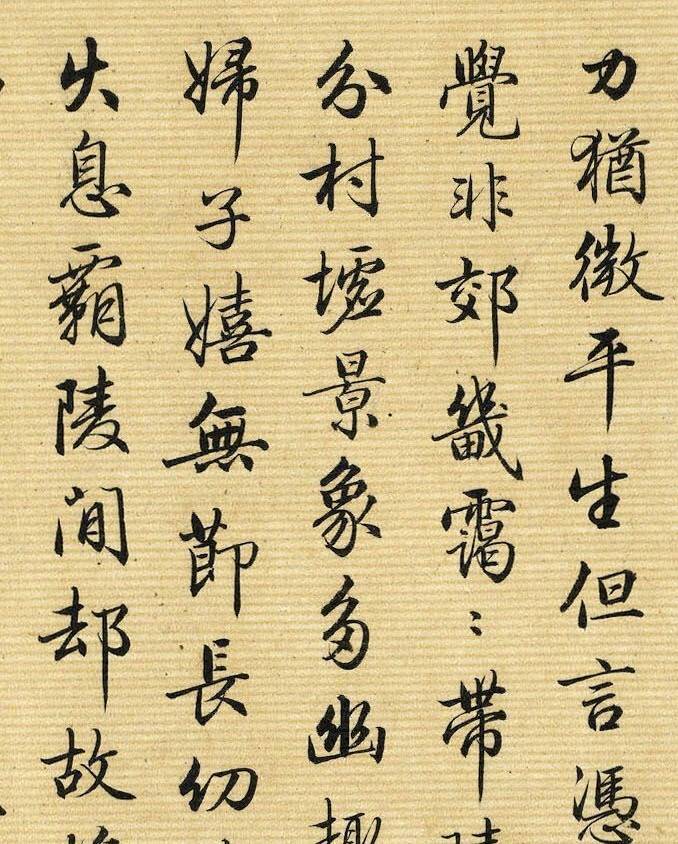 力猶微平生但言憑
覺非郊畿靄〻帶
分村墟景象多幽趣
婦子嬉無節長幼
失息霸陵間却故